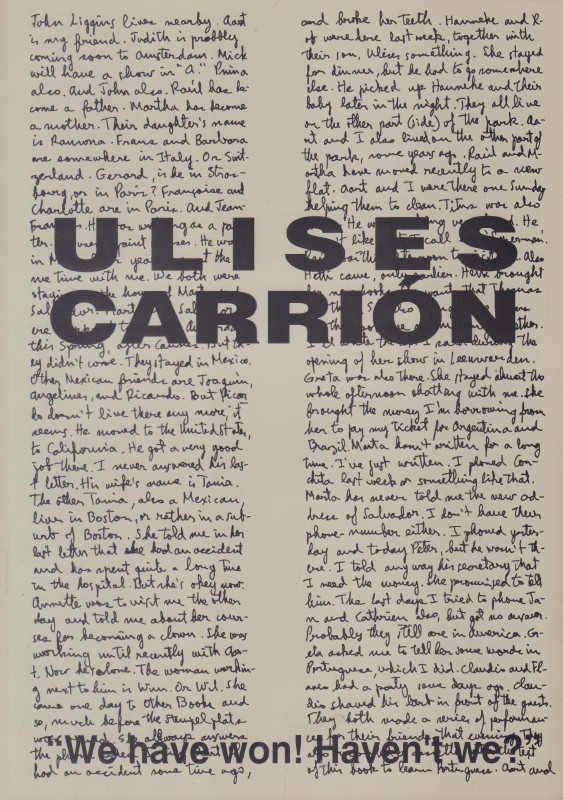 John Liggins lives nearby. Aart
is my friend. Judith is probbly
coming soon to Amsterdam. Mick
will have a show in "A." Pnina
also. And John also. Raúl has be-
come a father. Martha has become
a mother. Their daughter's name
is Ramona. Frans and Barbora
are somewhere in Italy. Or Swit-
zerland. Gerard, is he in Stras-
bourg, or in Paris? Françoise and
Charlotte are in Paris. And Jean-
He was working as a pa
ter.
in
me time with me. We both were
this Spring, after Cannes. But th-
ey didn't come. They stayed in Mexico.
Other Mexican friends are Joaquin,
Angelines, and Ricardo. But Ricar
do doesn't live there any more, it
seems. He moved to the United States,
to California. He got a very good
job there. I never answered his las-
t letter. His wife's name is Tania.
The other Tania, also a Mexican,
lives in Boston, or rather in a sub-
urb of Boston. She told me in her
last letter that she had an accident
and has spent quite a long time
in the hospital. But she's okey now.
Annette was to visit me the other
day and told me about her cour-
ses for becoming a clown. She was
working until recently with Aar-
t. Now he's alone. The woman workin-
g next to him is Wim. Or Wil. She
came one day to Other Books and
so, much before the Stempelplats
She always answers
the
had an accident some time ago,
and broke her teeth. Hanneke and R-
ob were here last week, together with
their son, Ulises something. She stayed
for dinner, but he had to go somewhere
else. He picked up Hanneke and their
baby later in the night. They all live
on the other part (side) of the park. Aa-
rt and I also lived on the other part of
the park, some years ago. Raúl and M-
artha have moved recently to a new
flat. Aart and I were there one Sunday
helping them to clean. Titus was also
He
like
Also
Hetti came, only earlier. Hetti brought
that Thomas
opening of her show in Leeuwarden.
Greta was also there. She stayed almost the
whole afternoon chatting with me. She
brought the money I'm borrowing from
her to pay my ticket for Argentina and
Brazil. Marta hasn't written for a long
time. I've just written. I phoned Con-
chita last week or something like that.
Marta has never told me the new ad-
dress of Salvador. I don't have their
phone-number either. I phoned yester-
day and today Peter, but he wasn't th-
ere. I told anyway his secretary that
I need the money. She promised to tell
him. The last days I tried to phone Ja-
n and Cathrien also, but got no answer.
Probably they still are in America. G-
ela asked me to tell her some words in
Portuguese, which I did. Claudio and Fl-
avio had a party some days ago. Clau-
dio shaved his beard in front of the guests.
They both made a series of performan-
es for their friends that evening. They
of this book to learn Portuguese. Aart and
ULISES
CARRIÓN
“We have won! Haven't we?”